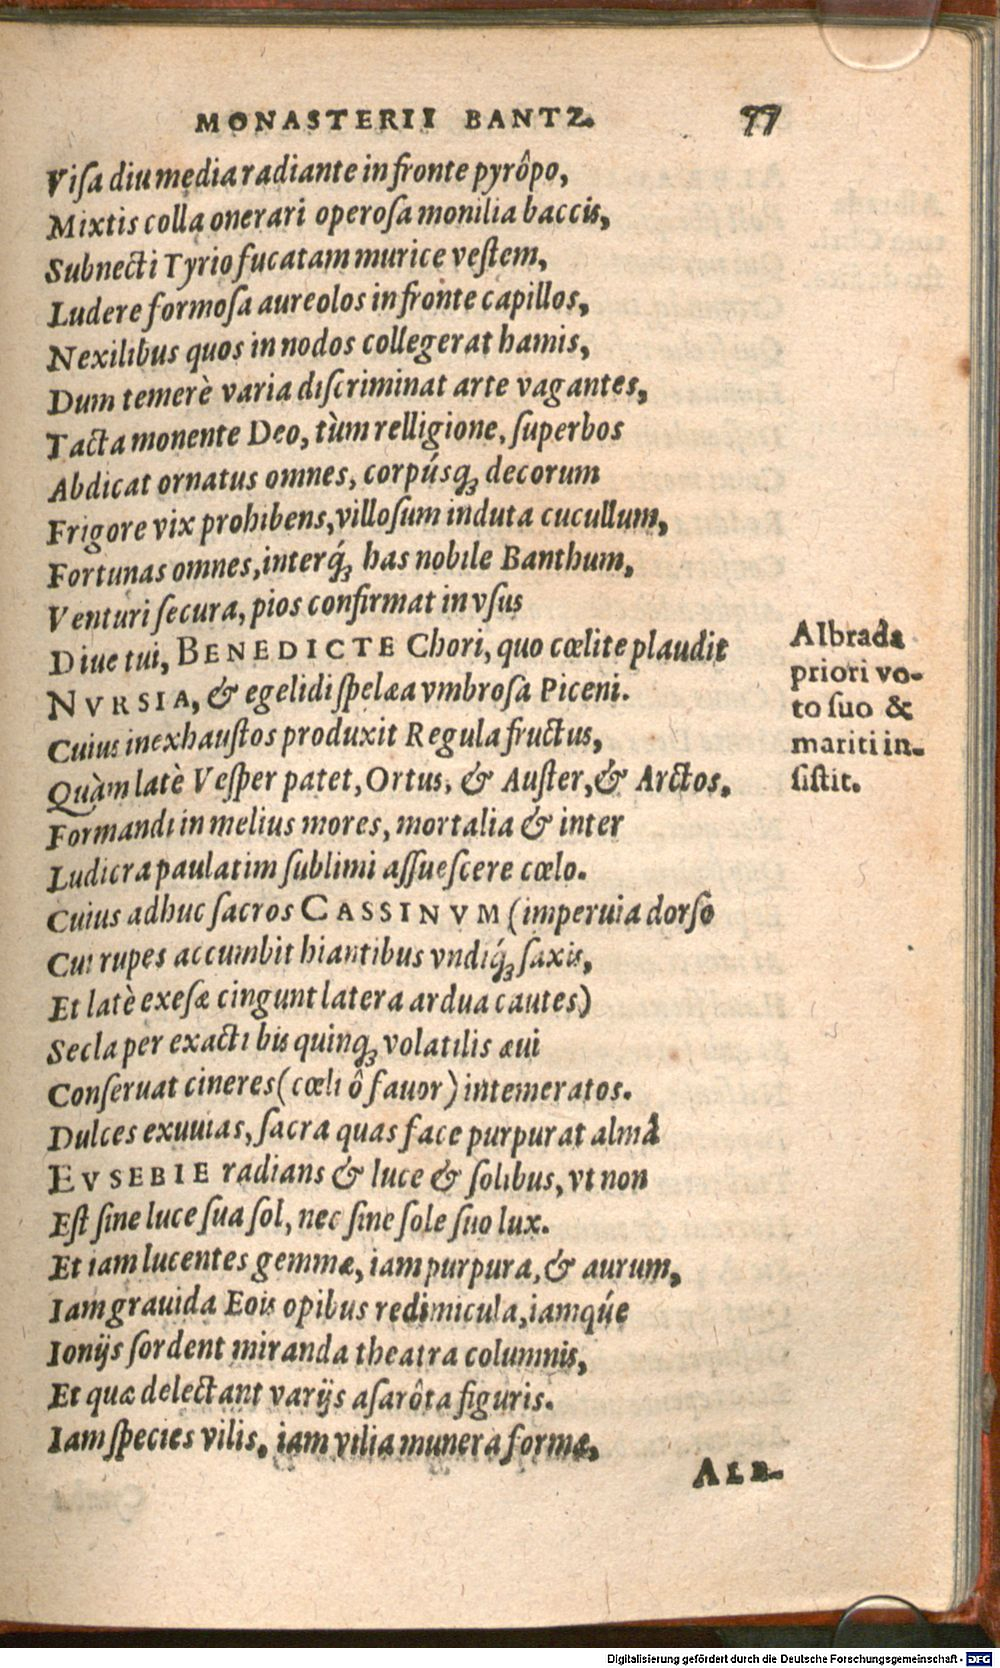 MONASTERII BANTZ. 77
Viſa diu media radiante in fronte pyrôpo,
Mixtis colla onerari operoſa monilia baccis,
Subnecti Tyrio fucatam murice veſtem,
Ludere formoſa aureolos in fronte capillos,
Nexilibus quos in nodos collegerat hamis,
Dum temerè varia diſcriminat arte vagantes,
Tacta monente Deo, tùm relligione, ſuperbos
Abdicat ornatus omnes, corpúsq́ꝫ decorum
Frigore vix prohibens, villoſum induta cucullum,
Fortunas omnes, interq́ꝫ has nobile Banthum,
Venturi ſecura, pios confirmat in vſus
Diue tui, BENEDICTE Chori, quo cœlite plaudit
NVRSIA, & egelidi ſpelæa vmbroſa Piceni.
Cuius inexhauſtos produxit Regula fructus,
Quàm latè Veſper patet, Ortus, & Auſter, & Arctos.
Formandi in melius mores, mortalia & inter
Ludicra paulatim ſublimi aſſueſcere cœlo.
Cuius adhuc ſacros CASSINVM (imperuia dorſo
Cui rupes accumbit hiantibus vndiq́ꝫ ſaxis,
Et latè exeſæ cingunt latera ardua cautes)
Secla per exacti bis quinqꝫ volatilis æui
Conſeruat cineres (cœli ô fauor) intemeratos.
Dulces exuuias, ſacra quas face purpurat almâ
EVSEBIE radians & luce & ſolibus, vt non
Eſt ſine luce ſua ſol, nec ſine ſole ſuo lux.
Et iam lucentes gemmæ, iam purpura, & aurum,
Iam grauida Eois opibus redimicula, iamqúe
Ionijs ſordent miranda theatra columnis,
Et quæ delectant varijs aſarôta figuris.
Iam ſpecies vilis, iam vilia munera formæ,
ALB-
Albrada
priori vo-
to ſuo &
mariti in-
ſiſtit.
Digitalisierung gefördert durch die Deutsche Forschungsgemeinschaft - DFG